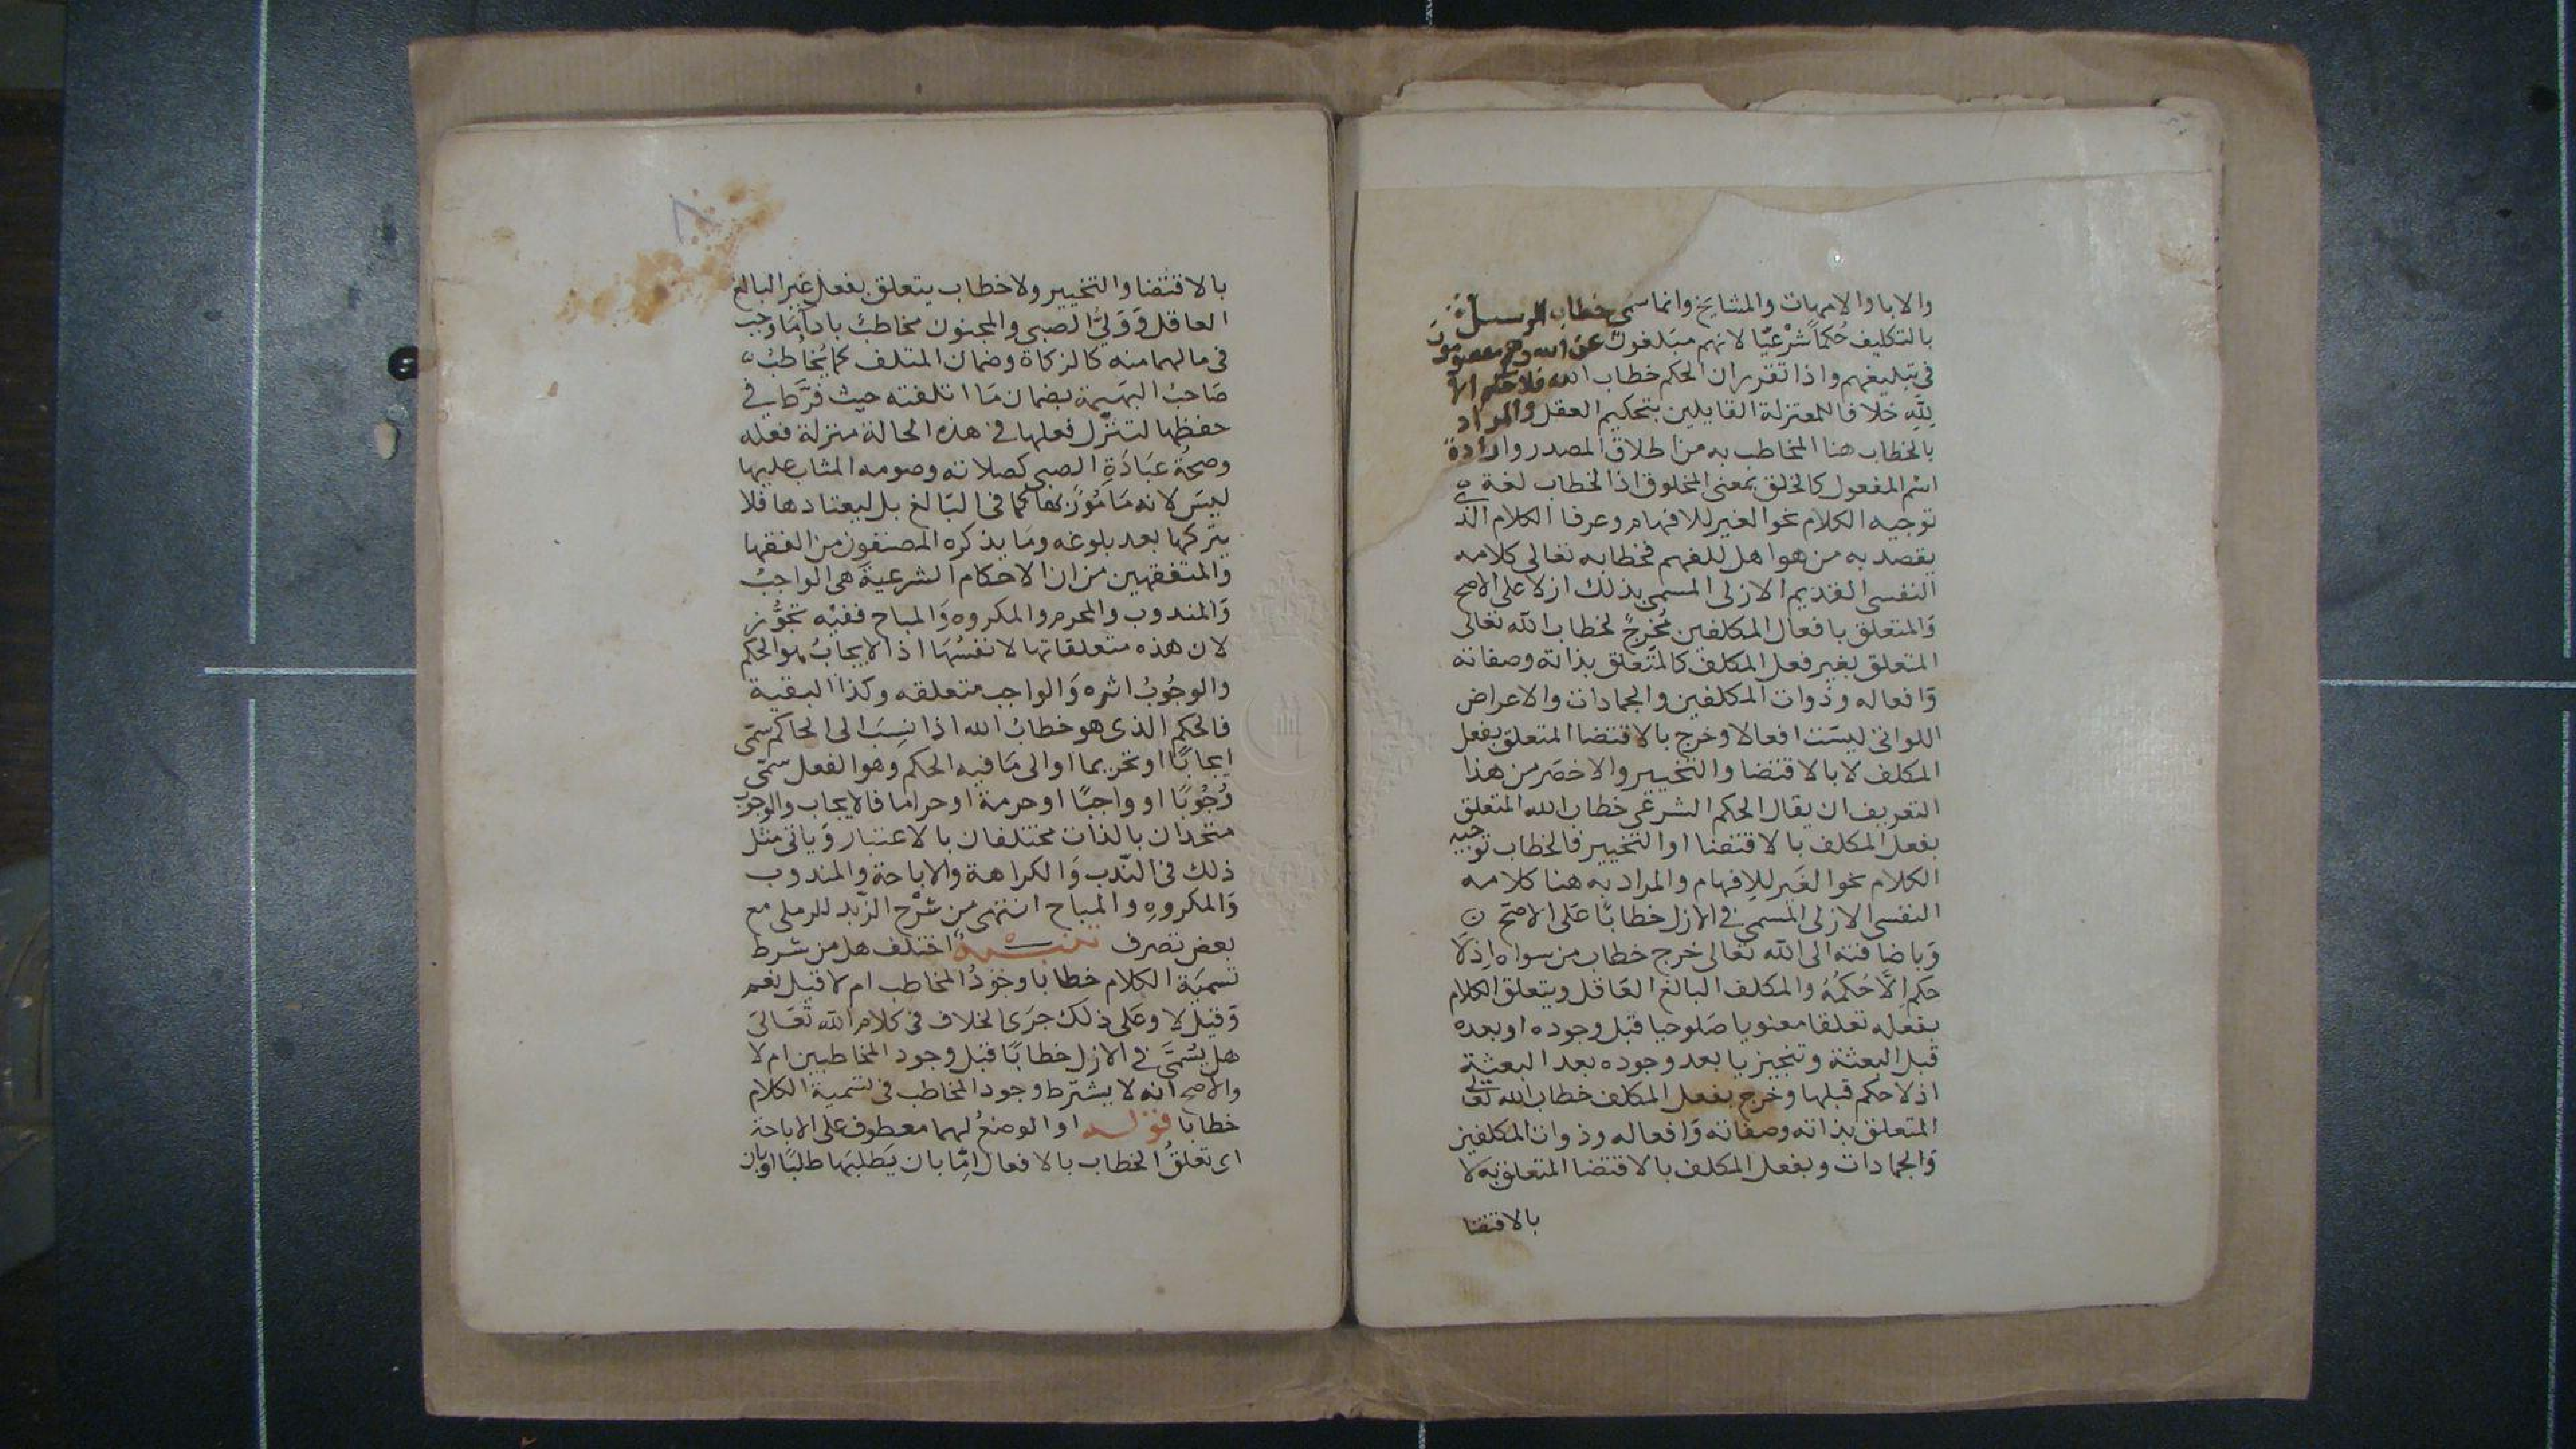 والابا والامهات والمشايخ وانما سمى خطاب الرسل
بالتكليف حُكمًا شرْعيًا لانهم مبلغون عن الله وهم معصومون
في تبليغهم واذا تقرر ان الحكم خطاب الله فلا حكم الا
لِلّهِ خلافا للمعتزلة القايلين بتحكيم العقل والمراد
بالخطاب هنا المخاطب به من اطلاق المصدر وارادة
اسْم المفعول كالخلق بمعنى المخلوق اذ الخطاب لغة
توجيه الكلام نحو الغير للافهام وعرفا الكلام الذي
يقصد به من هو اهل للفهم فخطابه تعالى كلامه
النفسى القديم الازلى المسمى بذلك ازلا على الاصح
وَالمتعلق بافعال المكلفين مُخرجٌ لخطاب الله تعالى
المتعلق بغير فعل المكلف كالمتعلق بذاته وصفاته
وَافعاله وذوات المكلفين والجمادات والاعراض
اللواتى ليسَت افعالا وخرج بالاقتضا المتعلق بفعل
المكلف لا بالاقتضا والتخيير والاخصَر من هذا
التعريف ان يقال الحكم الشرعى خطاب الله المتعلق
بفعل المكلف بالاقتضا او التخيير فالخطاب توجيه
الكلام نحو الغَير للِافهام والمراد به هنا كلامه
النفسى الازلى المسمى في الازل خطابًا عَلى الاصَح
وَباضافته الى الله تعالى خرج خطاب من سواه اِذلَا
حَكم اِلَّا حُكمُهُ والمكلف البالغ العَاقل ويتعلق الكلام
بفعله تعلقا معنويا صَلوحيا قبل وجوده او بعده
قبل البعثة وتنجيزيا بعد وجوده بعد البعثة
اذ لا حكم قبلها وخرج بفعل المكلف خطاب الله تعالى
المتعلق بذاته وصفاته وَافعاله وذوات المكلفين
وَالجمادات وبفعل المكلف بالاقتضا المتعلق به لا
بالاقتضا
بالاقتضا والتخيير ولا خطاب يتعلق بفعل غير البالغ
العاقل وَوَلىُّ الصبى والمجنون مخاطبٌ بادآ مَا وجب
فى مالهما منه كالزكاة وضمان المتلف كما يُخاطبُ
صَاحبُ البهَيمة بضمان مَا اتلفته حيث فرَّط في
حفظها لتنزّل فعلها فى هذه الحالة منزلة فعله
وصحةُ عبَادَةِ الصبى كصلاته وصومه المثاب عليها
ليسَ لانه مَامُورٌ بها كما فى البَالغ بل ليعتادها فلا
يتركها بعد بلوغه ومَا يذكره المصنفون من الفقها
والمتفقهين من ان الاحكام الشرعية هى الواجبُ
وَالمندوب والمحرم والمكروه وَالمباح ففيْه تجوُّز
لان هذه متعلقاتها لا نفسُهَا اذ الايجابُ هو الحكم
والوجُوبُ اثره وَالواجب متعلقه وكذا البقية
فالحكم الذى هو خطابُ الله اذا نسِبَ الى الحاكم سمّى
ايجابًا او تحريما او الى مَا فيه الحكم وهو الفعل سمّى
وُجُوبًا او واجبًا او حرمة او حراما فالايجاب والوجوب
متحدان بالذات مختلفان بالاعتبار وَياتى مثل
ذلك فى النّدب وَالكراهة والاباحة والمندوب
وَالمكروهِ والمباح انتهى من شرْح الزّبد للرملى مع
بعض تصرف تنبيهٌ اختلف هل من شرط
تسميَة الكلام خطابا وجَودُ المخاطب ام لا قيل نعم
وَقيل لا وعَلى ذلك جرَى الخلاف فى كلام الله تعَالىَ
هل يسُمىَّ في الازل خطابًا قبل وجود المخاطبين ام لا
والاصح انه لا يشترط وجود المخاطب فى تسمية الكلام
خطابا قوله او الوضعُ لهما معطوف على الاباحة
اى تعلقُ الخطاب بالافعال امِّا بان يَطلبَها طلبًا او بان